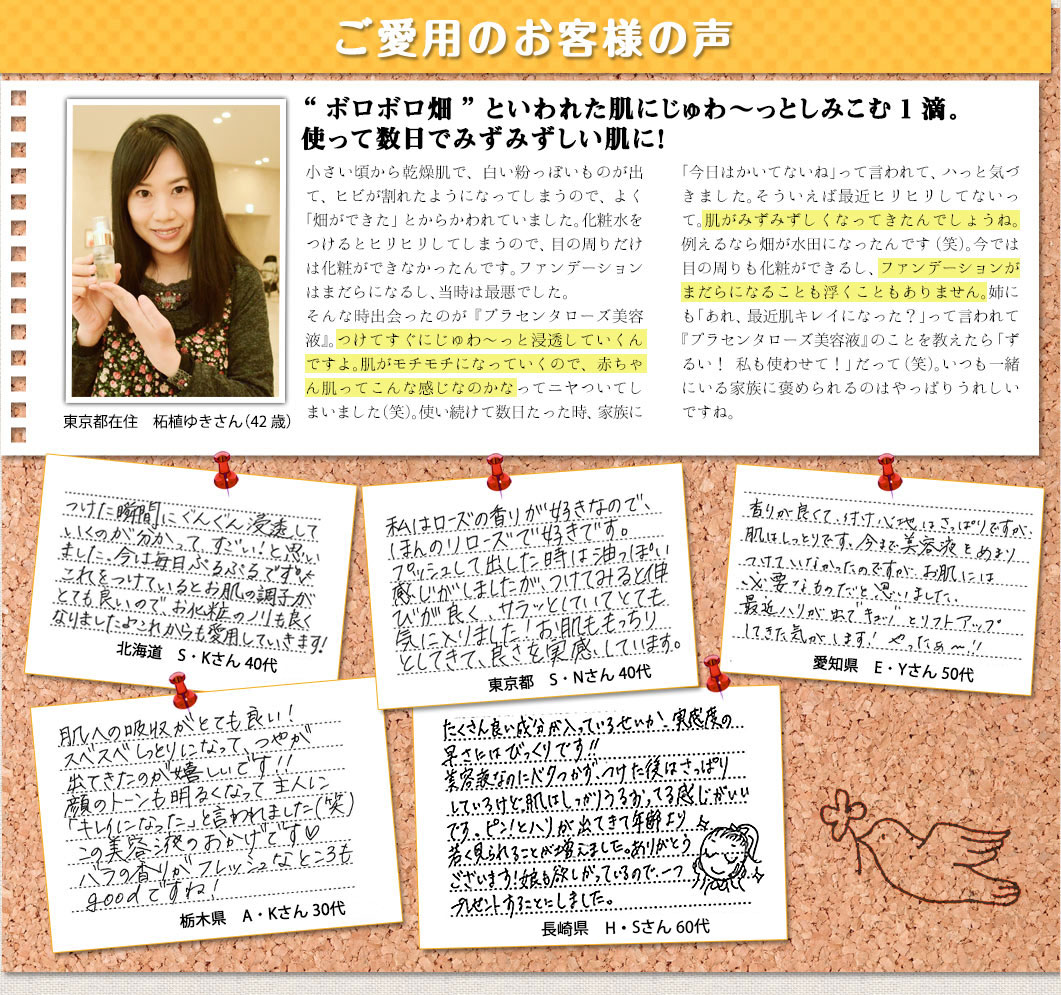 ご愛用のお客様の声
“ ボロボロ畑 ” といわれた肌にじゅわ～っとしみこむ 1 滴。
使って数日でみずみずしい肌に!
小さい頃から乾燥肌で、白い粉っぽいものが出
て、ヒビが割れたようになってしまうので、よく
「畑ができた」とからかわれていました。化粧水を
つけるとヒリヒリしてしまうので、目の周りだけ
は化粧ができなかったんです。ファンデーション
はまだらになるし、当時は最悪でした。
そんな時出会ったのが『プラセンタローズ美容
液』。つけてすぐにじゅわ～っと浸透していくん
ですよ。肌がモチモチになっていくので、赤ちゃ
ん肌ってこんな感じなのかなってニヤついてし
まいました（笑）。使い続けて数日たった時、家族に
「今日はかいてないね」って言われて、ハっと気づ
きました。そういえば最近ヒリヒリしてないっ
て。肌がみずみずしくなってきたんでしょうね。
例えるなら畑が水田になったんです（笑）。今では
目の周りも化粧ができるし、ファンデーションが
まだらになることも浮くこともありません。姉に
も「あれ、最近肌キレイになった？」って言われて
『プラセンタローズ美容液』のことを教えたら「ず
るい！ 私も使わせて！」だって（笑）。いつも一緒
にいる家族に褒められるのはやっぱりうれしい
ですね。
東京都在住　柘植ゆきさん（42 歳）
つけた瞬間にぐんぐん浸透して
いくのが分かって、すごい！と思い
ました、今は毎日ぷるぷるです♪
これをつけているとお肌の調子が
とても良いのでお化粧のノリも良く
なりました♪これからも愛用していきます!
北海道　S・Kさん 40代
私はローズの香りが好きなので、
ほんのりローズで好きです。
プッシュして出した時は油っぽい
感じがしましたが、つけてみると伸
びが良く、サラッとしていてとても
気に入りました！お肌ももっちり
としてきて、良さを実感しています。
東京都　S・Nさん 40代
香りが良くて、付け心地はさっぱりですが、
肌はしっとりです。今まで美容液をあまり
つけていなかったのですが、お肌には
必要なものだと思いました。
最近ハリが出てキュッ!とリフトアップ
してきた気がします! やったぁ〜!!
愛知県　E・Yさん 50代
肌への吸収がとても良い！
スベスベしっとりになって、つやが
出てきたのが嬉しいです!!
顔のトーンも明るくなって主人に
「キレイになった」と言われました(笑)
この美容液のおかげです♡
バラの香りがフレッシュなところも
goodですね！
栃木県　A・Kさん 30代
たくさん良い成分が入っているせいか、実感度の
早さにはびっくりです!!
美容液なのにベタつかず、つけた後はさっぱり
しているけど肌はしっかりうるおってる感じがいい
です。ピン!とハリが出てきて年齢より
若く見られることが増えました。ありがとう
ございます!娘も欲しがっているので、一つ
プレゼントすることにしました。
長崎県　H・Sさん 60代